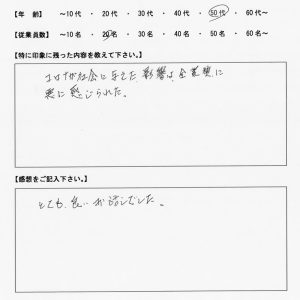 【年 齢】 ～10代 ・ 20代 ・ 30代 ・ 40代 ・ 50代 ・ 60代～
【従業員数】 ～10名 ・ 20名 ・ 30名 ・ 40名 ・ 50名 ・ 60名～
【特に印象に残った内容を教えて下さい。】
社会に与えた影響は
に感じられた。
【感想をご記入下さい。】
とても、良いお話でした。